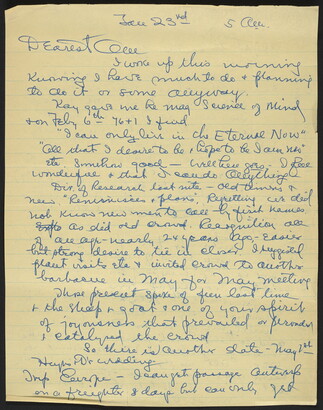 Jan 23rd 5 am.
Dearest
I woke up this morning
Knowing I have much to do & planning
to do it or some anyway.
Kay gave me Re may Science of Mind
& on Feby 6th 76+1 I find
"I can only live in the Eternal Now"
"All that I desire to be & hope to be I am now
etc. Somehow good — I feel
wonderful & that I can do Anything
Dir. of Research last nite — old timers &
new. "Reminisces & plans". Regretting we did
not know new men to call by first names
as did old crowd. Recognition all
of an age - nearly 24 years ago. Easier
but strong desire to tie in closer. I suggested
plant visits etc & invited crowd to another
barbecue in May for May meeting
Those present spoke of fun last time
& the sheep & goat & one of your spirit
of joyousness that prevailed or pervaded
& catalyzed the crowd
So there is another date - May 1st
wedding
Trip Europe - I caught passage
on a freighter 8 days but can only get